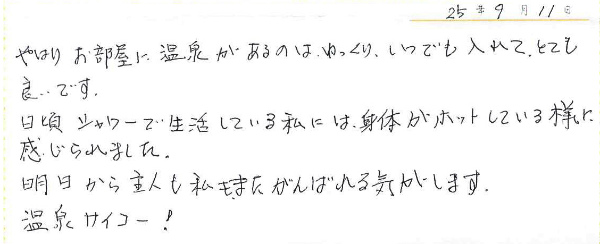 25年9月11日
やはりお部屋に温泉があるのは、ゆっくり、いつでも入れて、とても
良いです。
日頃シャワーで生活している私には、身体がホットしている様に
感じられました。
明日から主人も私もまたがんばれる気がします。
温泉サイコー!